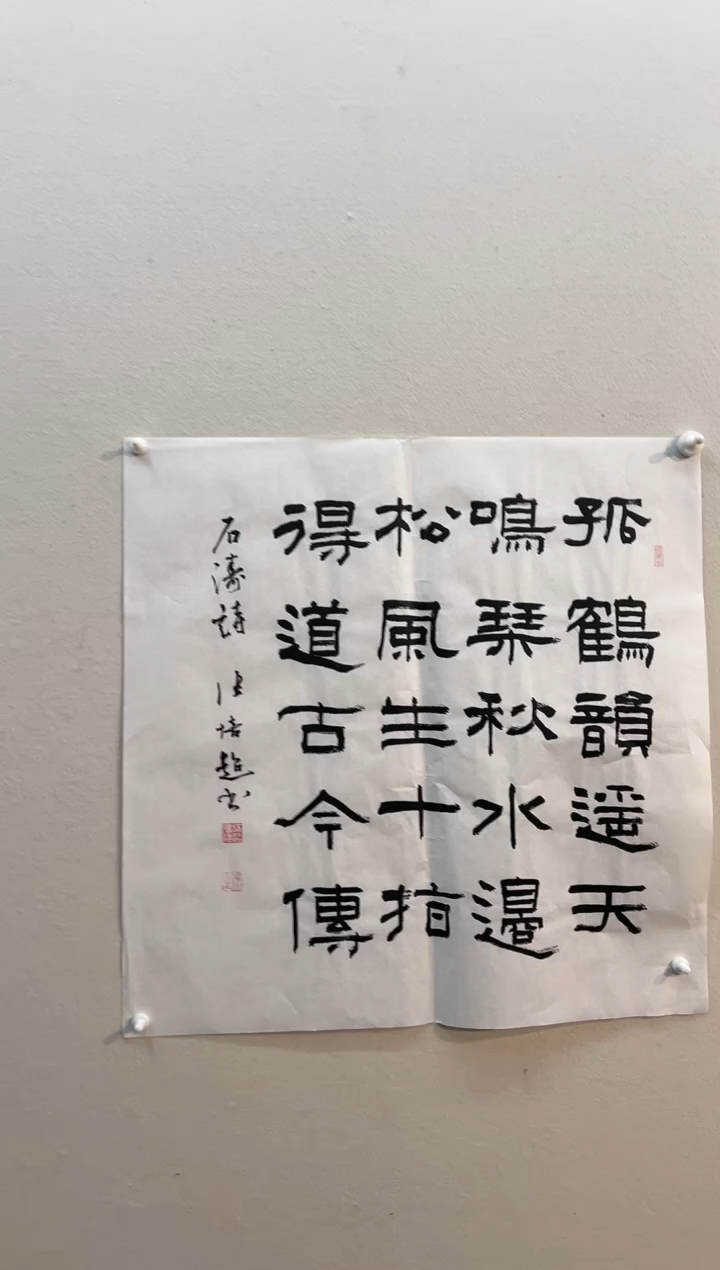 孤鶴韻遥天
鳴琴秋水邊
松風生十指
得道古今傳
石濤詩 培超書